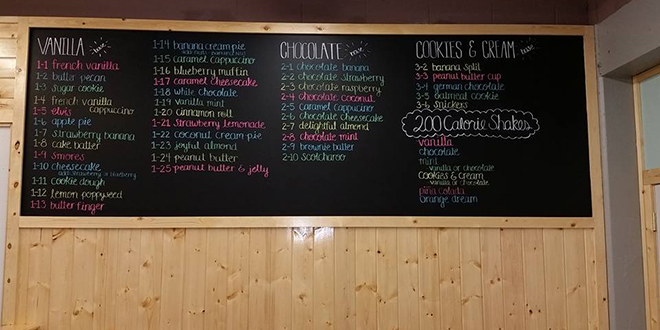 VANILLA base
1-1 french vanilla
1-2 butter pecan
1-3 sugar cookie
1-4 french vanilla
cappuccino
1-5 elvis
1-6 apple pie
1-7 strawberry banana
1-8 cake batter
1-9 smores
1-10 cheesecake
add: strawberry or blueberry
1-11 cookie dough
1-12 lemon poppyseed
1-13 butter finger
1-14 banana cream pie
1-15 caramel cappuccino
1-16 blueberry muffin
1-17 caramel cheesecake
1-18 white chocolate
1-19 vanilla mint
1-20 cinnamon roll
1-21 strawberry lemonade
1-22 coconut cream pie
1-23 joyful almond
1-24 peanut butter
1-25 peanut butter & jelly
CHOCOLATE base
2-1 chocolate banana
2-2 chocolate strawberry
2-3 chocolate raspberry
2-4 chocolate coconut
2-5 caramel cappuccino
2-6 chocolate cheesecake
2-7 delightful almond
2-8 chocolate mint
2-9 brownie batter
2-10 scotcharoo
COOKIES & CREAM base
3-2 banana split
3-3 peanut butter cup
3-4 german chocolate
3-5 oatmeal cookie
3-6 snickers
200 Calorie Shakes
vanilla
chocolate
mint
- vanilla or chocolate
cookies & cream
- vanilla or chocolate
piña colada
orange dream